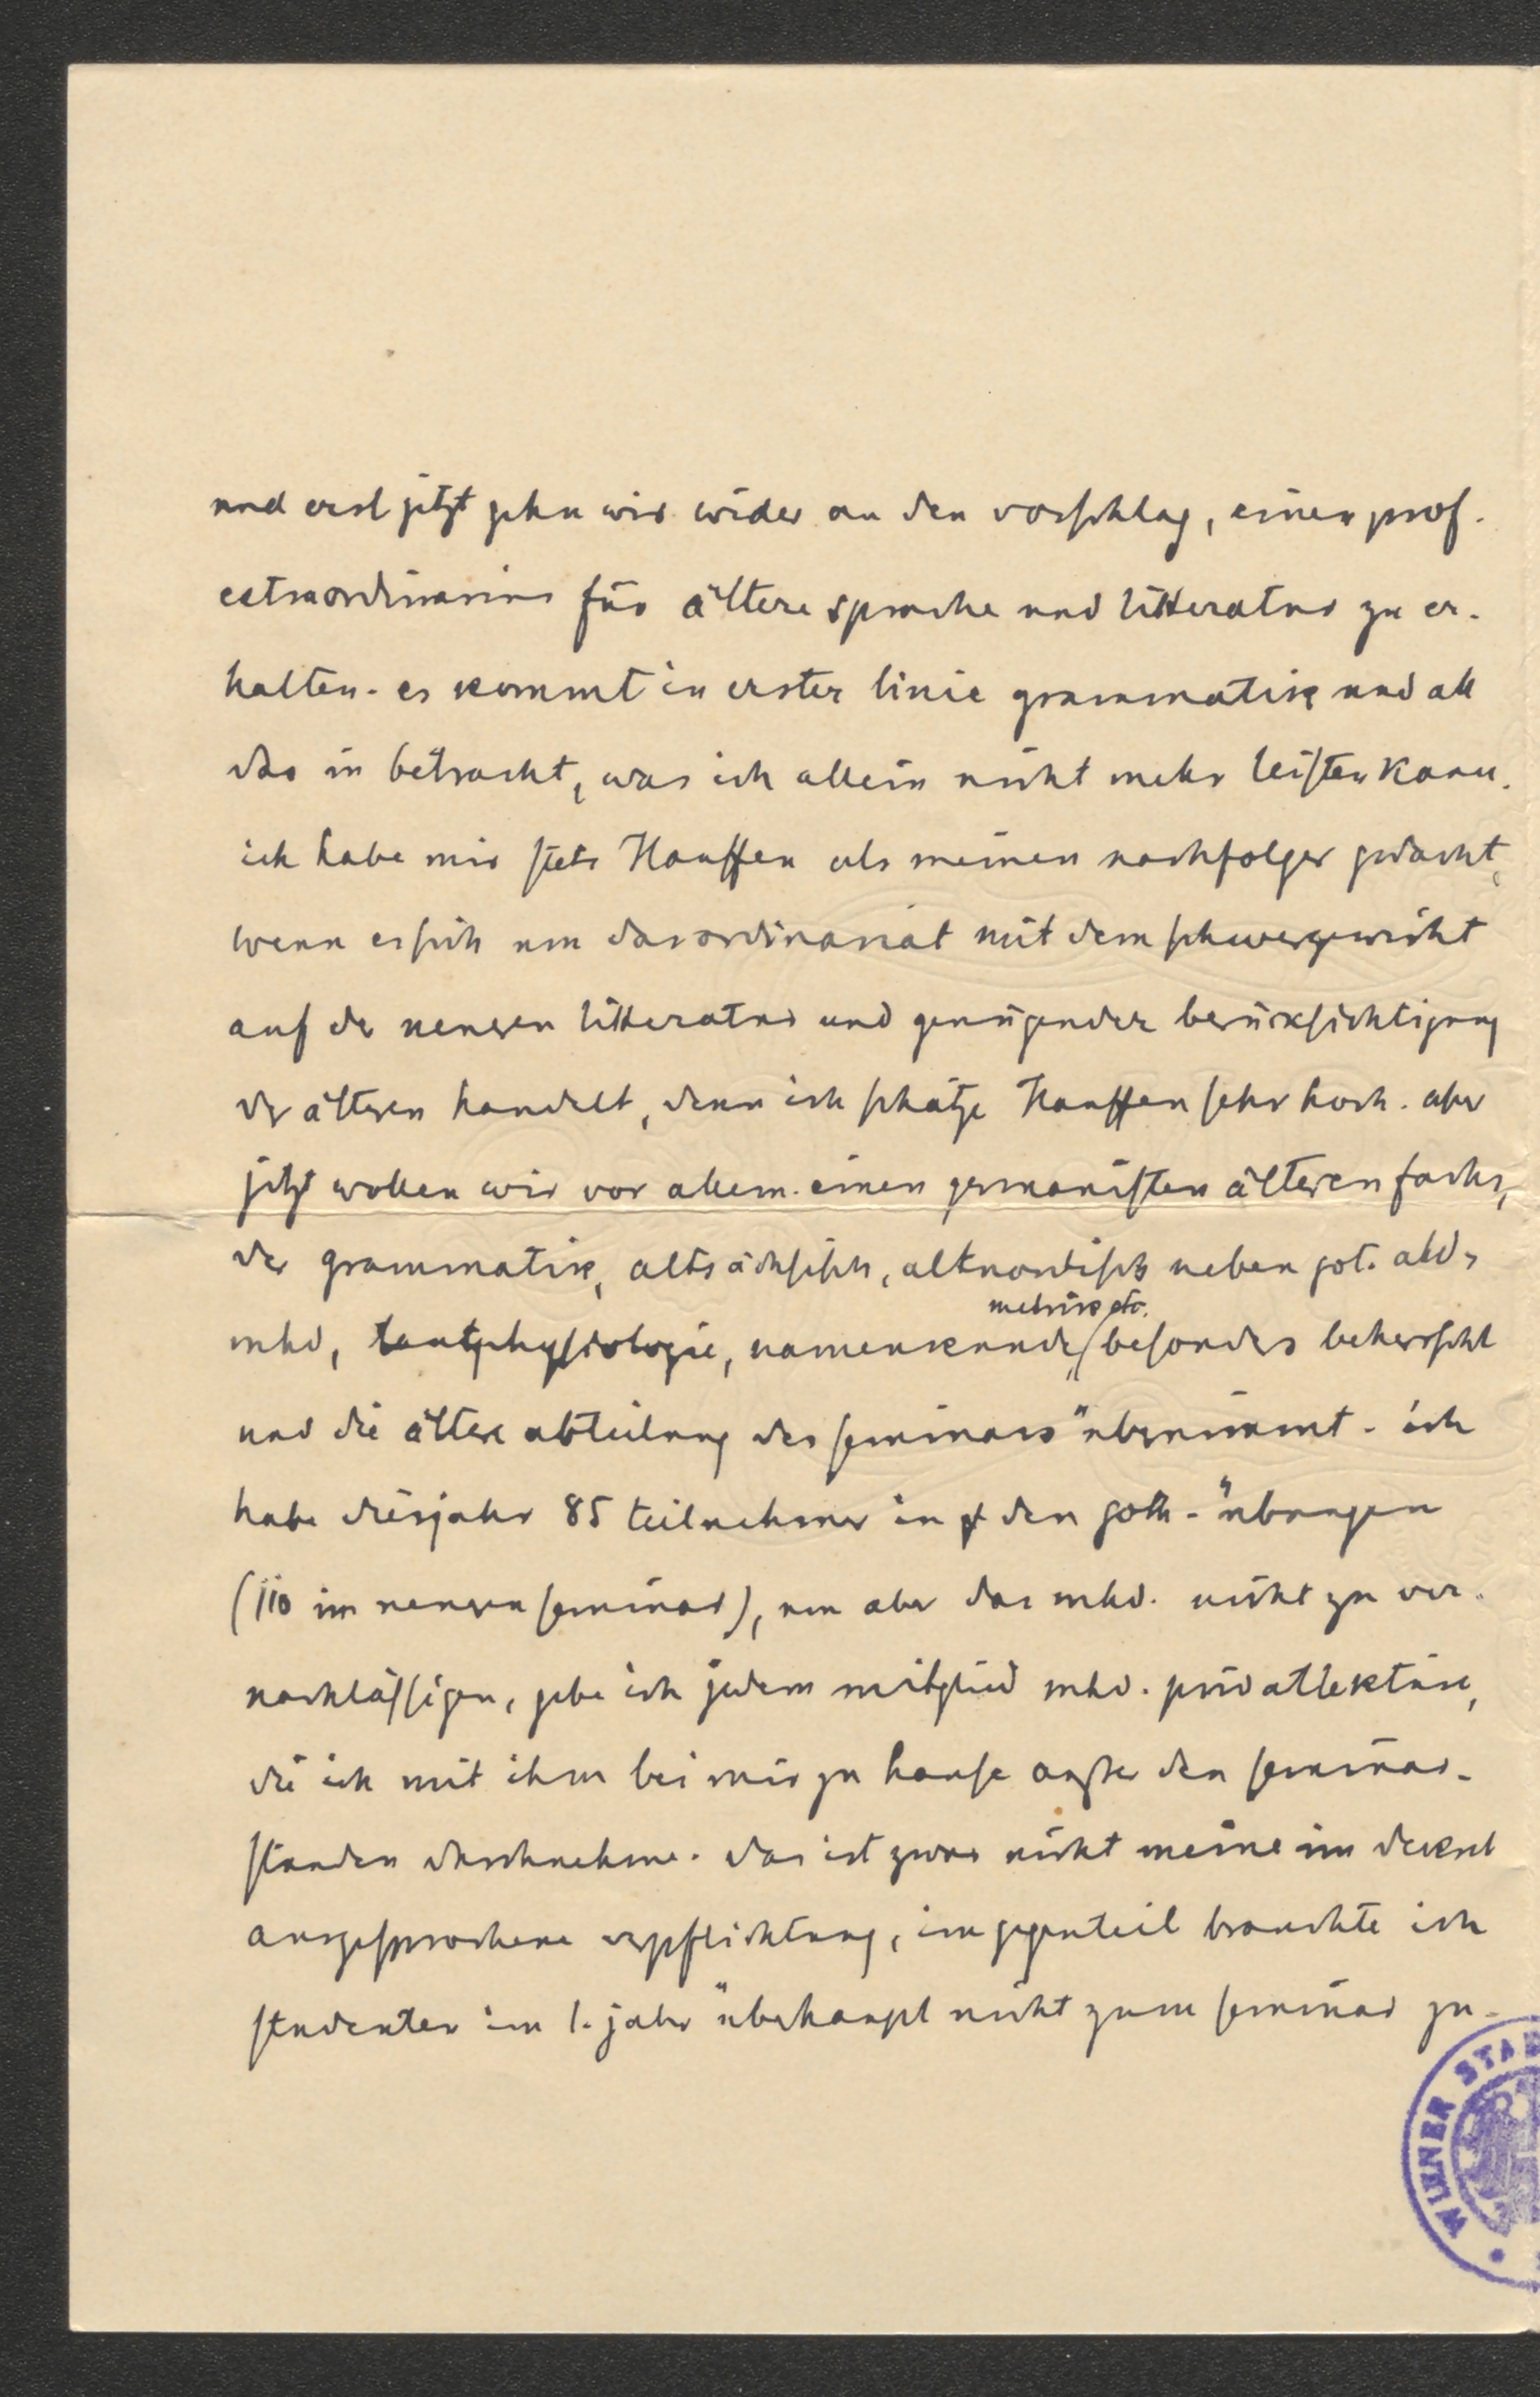 und erst jetzt gehn wir wider an den vorschlag, einen prof.
extraordinarius für ältere sprache und litteratur zu er-
halten. es kommt in erster linie grammatik und all
das in betracht, was ich allein nicht mehr leisten kann.
ich habe mir stets Hauffen als meinen nachfolger gedacht,
wenn es sich um das ordinariat mit dem schwergewicht
auf der neueren litteratur und genügender berücksichtigung
der älteren handelt, denn ich schätze Hauffen sehr hoch. aber
jetzt wollen wir vor allem einen germanisten älteren fachs,
der grammatik, altsächsisch, altnordisch neben got. ahd,
metrik etc.
mhd, lautphysiologie, namenkunde besonders beherrscht
und die ältere abteilung des seminars übernimmt. ich
habe diesjahr 85 teilnehmer in den goth. übungen
(110 im neueren seminar), um aber das mhd. nicht zu ver-
nachlässigen, gebe ich jedem mitglied mhd. privatlektüre,
die ich mit ihm bei mir zu hause außer den seminar-
stunden durchnehme. das ist zwar nicht meine im dekret
ausgesprochene verpflichtung, im gegenteil brauchte ich
studenten im 1. jahr überhaupt nicht zum seminar zu-
WIENER STA